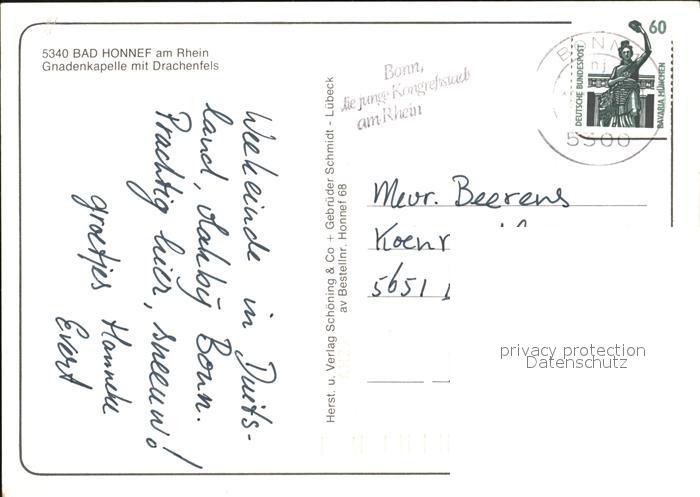 5340 BAD HONNEF am Rhein
Gnadenkapelle mit Drachenfels
Weekeinde in Duits-
land, vlakbij Bonn.
Prachtig hier, sneeuw!
groetjes Hanneke
Evert
Herst. u. Verlag Schöning & Co + Gebrüder Schmidt - Lübeck
av Bestellnr. Honnef 68
Bonn,
die junge Kongreßstadt
am Rhein
BONN
nj
5300
60
DEUTSCHE BUNDESPOST
BAVARIA MÜNCHEN
Mevr. Beerens
Koenr
5651
privacy protection
Datenschutz